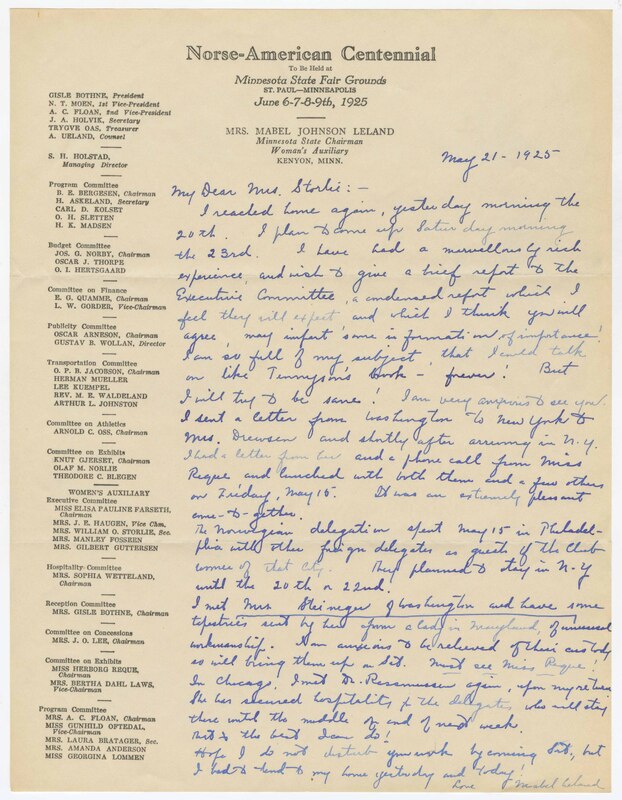 Norse-American Centennial
To Be Held at
Minnesota State Fair Grounds
ST. PAUL—MINNEAPOLIS
June 6-7-8-9th, 1925
MRS. MABEL JOHNSON LELAND
Minnesota State Chairman
Woman's Auxiliary
KENYON, MINN.
GISLE BOTHNE, President
N. T. MOEN, 1st Vice-President
A. C. FLOAN, 2nd Vice-President
J. A. HOLVIK, Secretary
TRYGVE OAS, Treasurer
A. UELAND, Counsel
S. H. HOLSTAD,
Managing Director
Program Committee
B. E. BERGESEN, Chairman
H. ASKELAND, Secretary
CARL D. KOLSET
O. H. SLETTEN
H. K. MADSEN
Budget Committee
JOS. G. NORBY, Chairman
OSCAR J. THORPE
O. I. HERTSGAARD
Committee on Finance
E. G. QUAMME, Chairman
L. W. GORDER, Vice-Chairman
Publicity Committee
OSCAR ARNESON, Chairman
GUSTAV B. WOLLAN, Director
Transportation Committee
O. P. B. JACOBSON, Chairman
HERMAN MUELLER
LEE KUEMPEL
REV. M. E. WALDELAND
ARTHUR L. JOHNSTON
Committee on Athletics
ARNOLD C. OSS, Chairman
Committee on Exhibits
KNUT GJERSET, Chairman
OLAF M. NORLIE
THEODORE C. BLEGEN
WOMEN'S AUXILIARY
Executive Committee
MISS ELISA PAULINE FARSETH,
Chairman
MRS. J. E. HAUGEN, Vice Chm.
MRS. WILLIAM O. STORLIE, Sec.
MRS. MANLEY FOSSEEN
MRS. GILBERT GUTTERSEN
Hospitality Committee
MRS. SOPHIA WETTELAND,
Chairman
Reception Committee
MRS. GISLE BOTHNE, Chairman
Committee on Concessions
MRS. J. O. LEE, Chairman
Committee on Exhibits
MISS HERBORG REQUE,
Chairman
MRS. BERTHA DAHL LAWS,
Vice-Chairman
Program Committee
MRS. A. C. FLOAN, Chairman
MISS GUNHILD OFTEDAL,
Vice-Chairman
MRS. LAURA BRATAGER, Sec.
MRS. AMANDA ANDERSON
MISS GEORGINA LOMMEN
May 21 - 1925
My Dear Mrs. Storlie: -
I reached home again, yesterday morning the
20th. I plan to come up Saturday morning
the 23rd. I have had a marvellously rich
experience, and wish to give a brief report to the
Executive Committee, a condensed report which I
feel they will expect and which I think you will
agree, may impart some information of importance!
I am so full of my subject, that I could talk
on like Tennyson's Brook - forever! But
I will try to be sane! I am very anxious to see you!
I sent a letter from Washington to New York to
Mrs. Drewsen and shortly after arriving in N.Y.
I had a letter from her and a phone call from Miss
Reque and lunched with both them and a few others
on Friday, May 15. It was an extremely pleasant
come-to-gether.
The Norwegian delegation spent May 15 in Philadel-
phia with other foreign delegates as guests of the Club
women of that City. They planned to stay in N-Y
until the 20th or 22nd.
I met Mrs Steineger of Washington and have some
tapestries sent by her from a lady in Maryland, of unusual
workmanship. I am anxious to be relieved of their custody
so will bring them up on Sat. Must see Miss Reque!
In Chicago, I met Dr. Rassmussen again, upon my return
She has secured hospitality for the delegates, who will stay
there until the middle of end of next week.
This the best I can do!
Hope I do not disturb your work by coming Sat., but
I had to tend to my home yesterday and today!
Love Mabel Leland